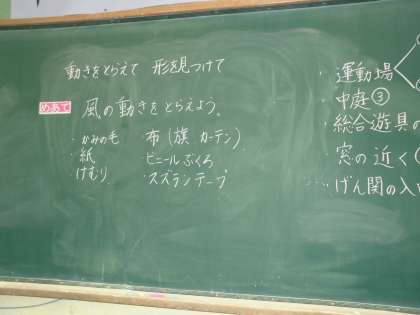 動きをとらえて 形を見つけて
めあて 風の動きをとらえよう。
・かみの毛 布(旗 カーテン)
・紙 ビニールぶくろ
けむり ・スズランテープ
・運動場
・中庭③
・総合遊具の
・窓の近く(
・げん関の入